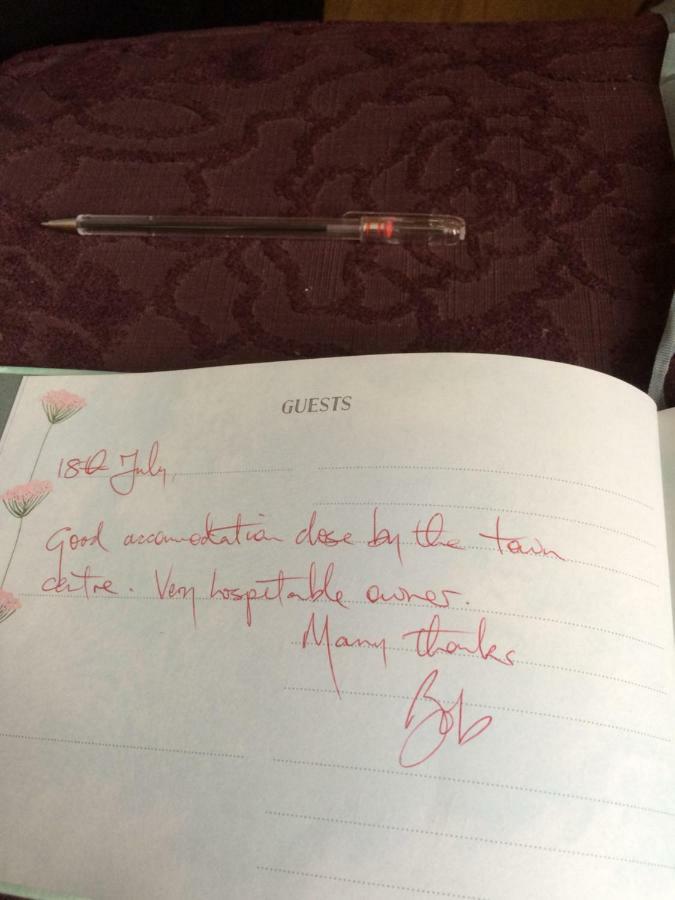 GUESTS
18th July,
Good accomodation close by the town
centre. Very hospitable owner.
Many thanks
Bob